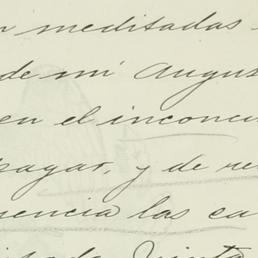 n meditadas
de mi Augus
en el inconcu
pagar, y de re
sencia las ca